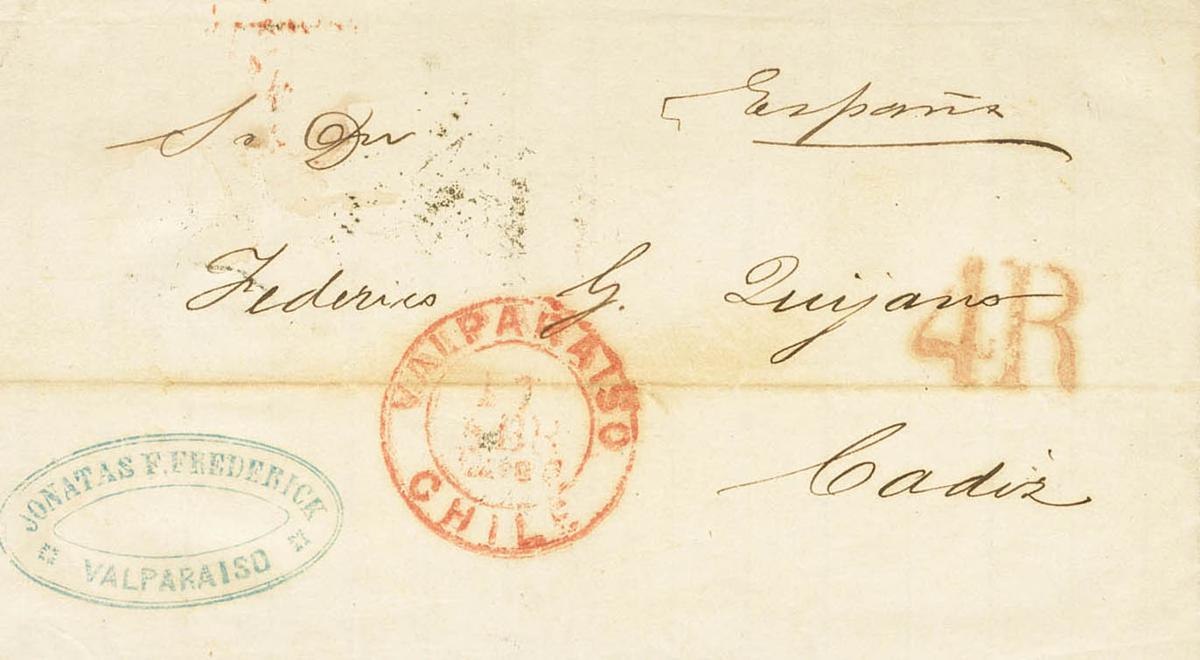 España
Sr Dn
Federico G. Quijano
4R
VALPARAISO
17
CHILE
Cadiz
JONATAS F. FREDERICK
VALPARAISO